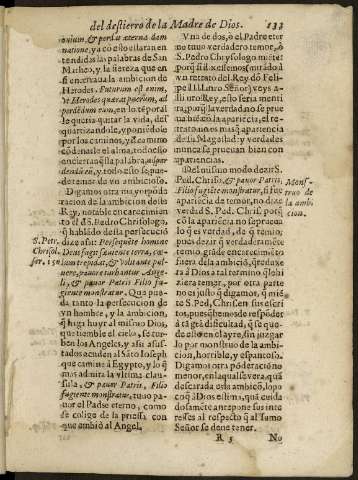 del destierro de la Madre de Dios. 133
omnium, & perdũ æterna dam
natione, ya cõ esto estaran en
tendidas las palabras de San
Matheo, y la fiereza que en
sí encerraua la ambicion de
Herodes. Futurum est enim,
vt Herodes quærat puerum, ad
perdẽdum eum,
le queria quitar la vida, des-
quartizandole, y poniẽdole
por los caminos, y
dẽnarle el alma, todo esso
encierran esta palabra, ad per
dendũ eũ, y todo esto se pue-
de temer de vn ambicioso.
Digamos otra mayor põde
racion de la ambicion deste
Rey, notable encarecimiento
el de S. Pedro Chrysologo,
q̃ hablãdo desta persecuciõ
dize assi: Persequẽte homine
Deus fugit, fauente terra, cœ-
lum trepidat, & volitante pul-
uere, pauore turbantur Ange-
li, & pauor Patris Filio fu-
giente monstratur. Que pue-
da tanto la persecucion de
vn hombre, y la ambicion,
q̃ haga huyr al mismo Dios,
que tiemble el cielo, se tur-
ben los Angeles, y assi assus-
tados acuden al Sãto Ioseph
que camine à Egypto, y lo q̃
mas admira la vltima clau-
sula, & pauor Patris, Filio
fugiente monstratur, tuuo pa-
uor el Padre eterno, como
se colige de la priessa con
que embiò al Angel.
S. Petr.
Chrysol.
ser. 150
Vna de dos, ò el Padre eter
no tuuo verdadero temor, ò
S. Pedro Chrysologo miẽte:
porq̃ si dixessemos (mirãdo à
vn retrato del Rey dõ Feli-
pe IIII. nro Señor) veys a-
lli nro Rey, esto seria menti
ra, porq̃ la verdad no se prue
ua biẽ cõ la apariẽcia, el re-
trato no es mas q̃ apariencia
de su Magestad: y verdades
nunca se prueuan bien con
apariencias.
Del mismo modo dezir S.
Ped. Chriso. & pauor Patris,
Filio fugiẽte monstratur, si fue
apariẽcia de temor, no dize
verdad S. Ped. Chris. porq̃
cõ la apariẽcia no se prueua
lo q̃ es verdad, de q̃ temio;
pues dezir q̃ verdaderamẽte
temio, grãde encarecimiẽto
fuera dela ambiciõ, q̃ reduxe
ra à Dios a tal termino q̃ le hi
ziera temer, por otra parte
no es justo q̃ digamos, q̃ miẽ
te S. Ped. Chris. en sus escri
tos, pues q̃ hemos de respõder
à tãgrã dificultad, q̃ se que-
de esto en el ayre, sin juzgar
lo por monstruo de la ambi
cion, horrible, y espantoso.
Digamos otra põderaciõ no
menor, en la qual se vera, quã
descarada es la ambiciõ, lo po
co q̃ à Dios estima, quã cuida
dosamẽte antepone sus inte
resses al respecto q̃ al sumo
Señor se deue tener.
Mons-
truo de
la ambi
cion.
R 3 No